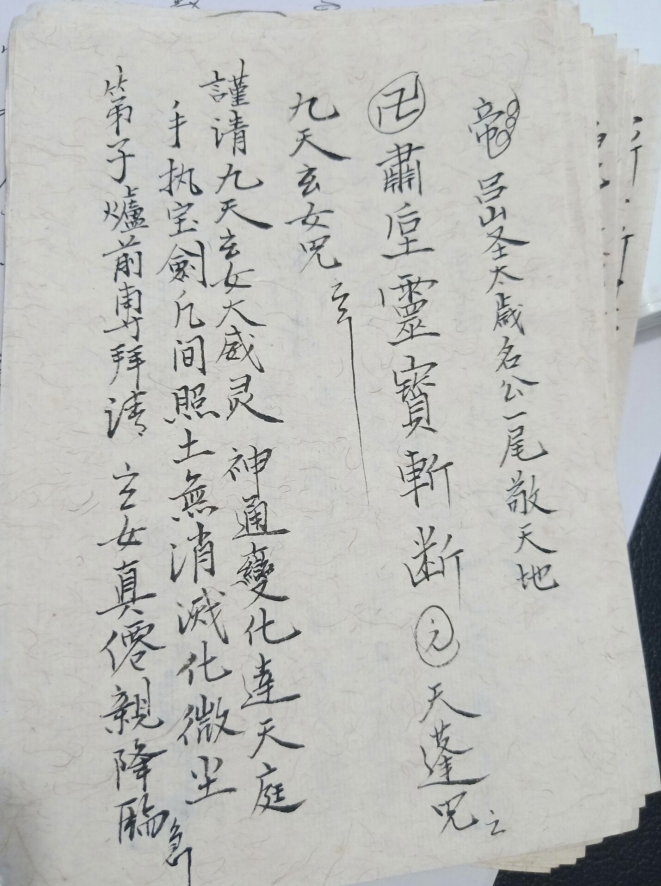 帝 吕山圣太歲名公一尾敬天地
卍 肅 靈寶斬断 元 天蓬咒
九天玄女咒
謹请九天玄女大威灵 神通變化達天庭
手执宝劍凡间照 土無消滅化微尘
第子爐前專拜请 玄女真僊親降臨 急